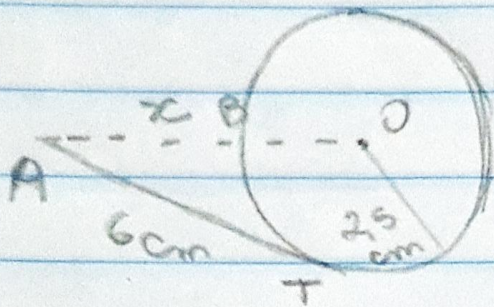 x B O
A
6cm
2,5
cm
T